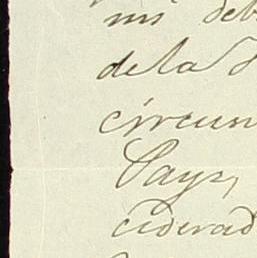 mis deb
de la
circun
Pays,
ciderad